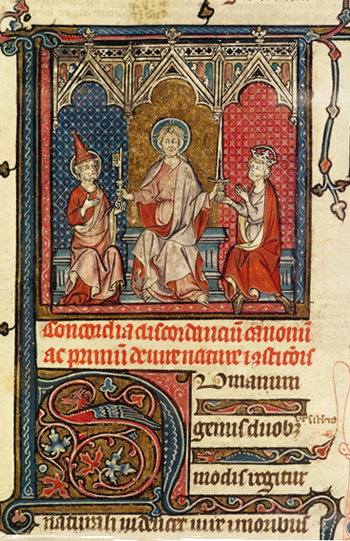 Concordia discordanciū canonū
ac primū de iure nature ⁊ ꝯstitōis
Humanum
genus duobꝫ
modis regitur
naturali uidelicet iure ⁊ moribus